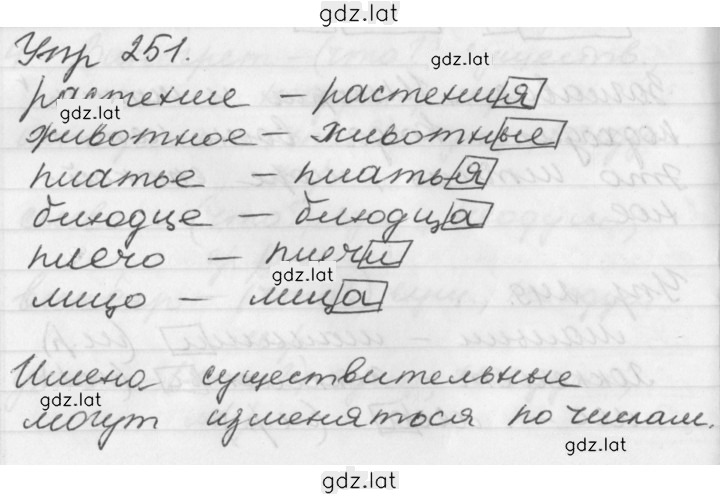 gdz.lat
Упр 251.
gdz.lat
растение – растения
gdz.lat
животное – животные
платье – платья
блюдце – блюдца
gdz.lat
плечо – плечи
gdz.lat
лицо – лица
Имена существительные
gdz.lat
могут изменяться по числам.
gdz.lat
gdz.lat